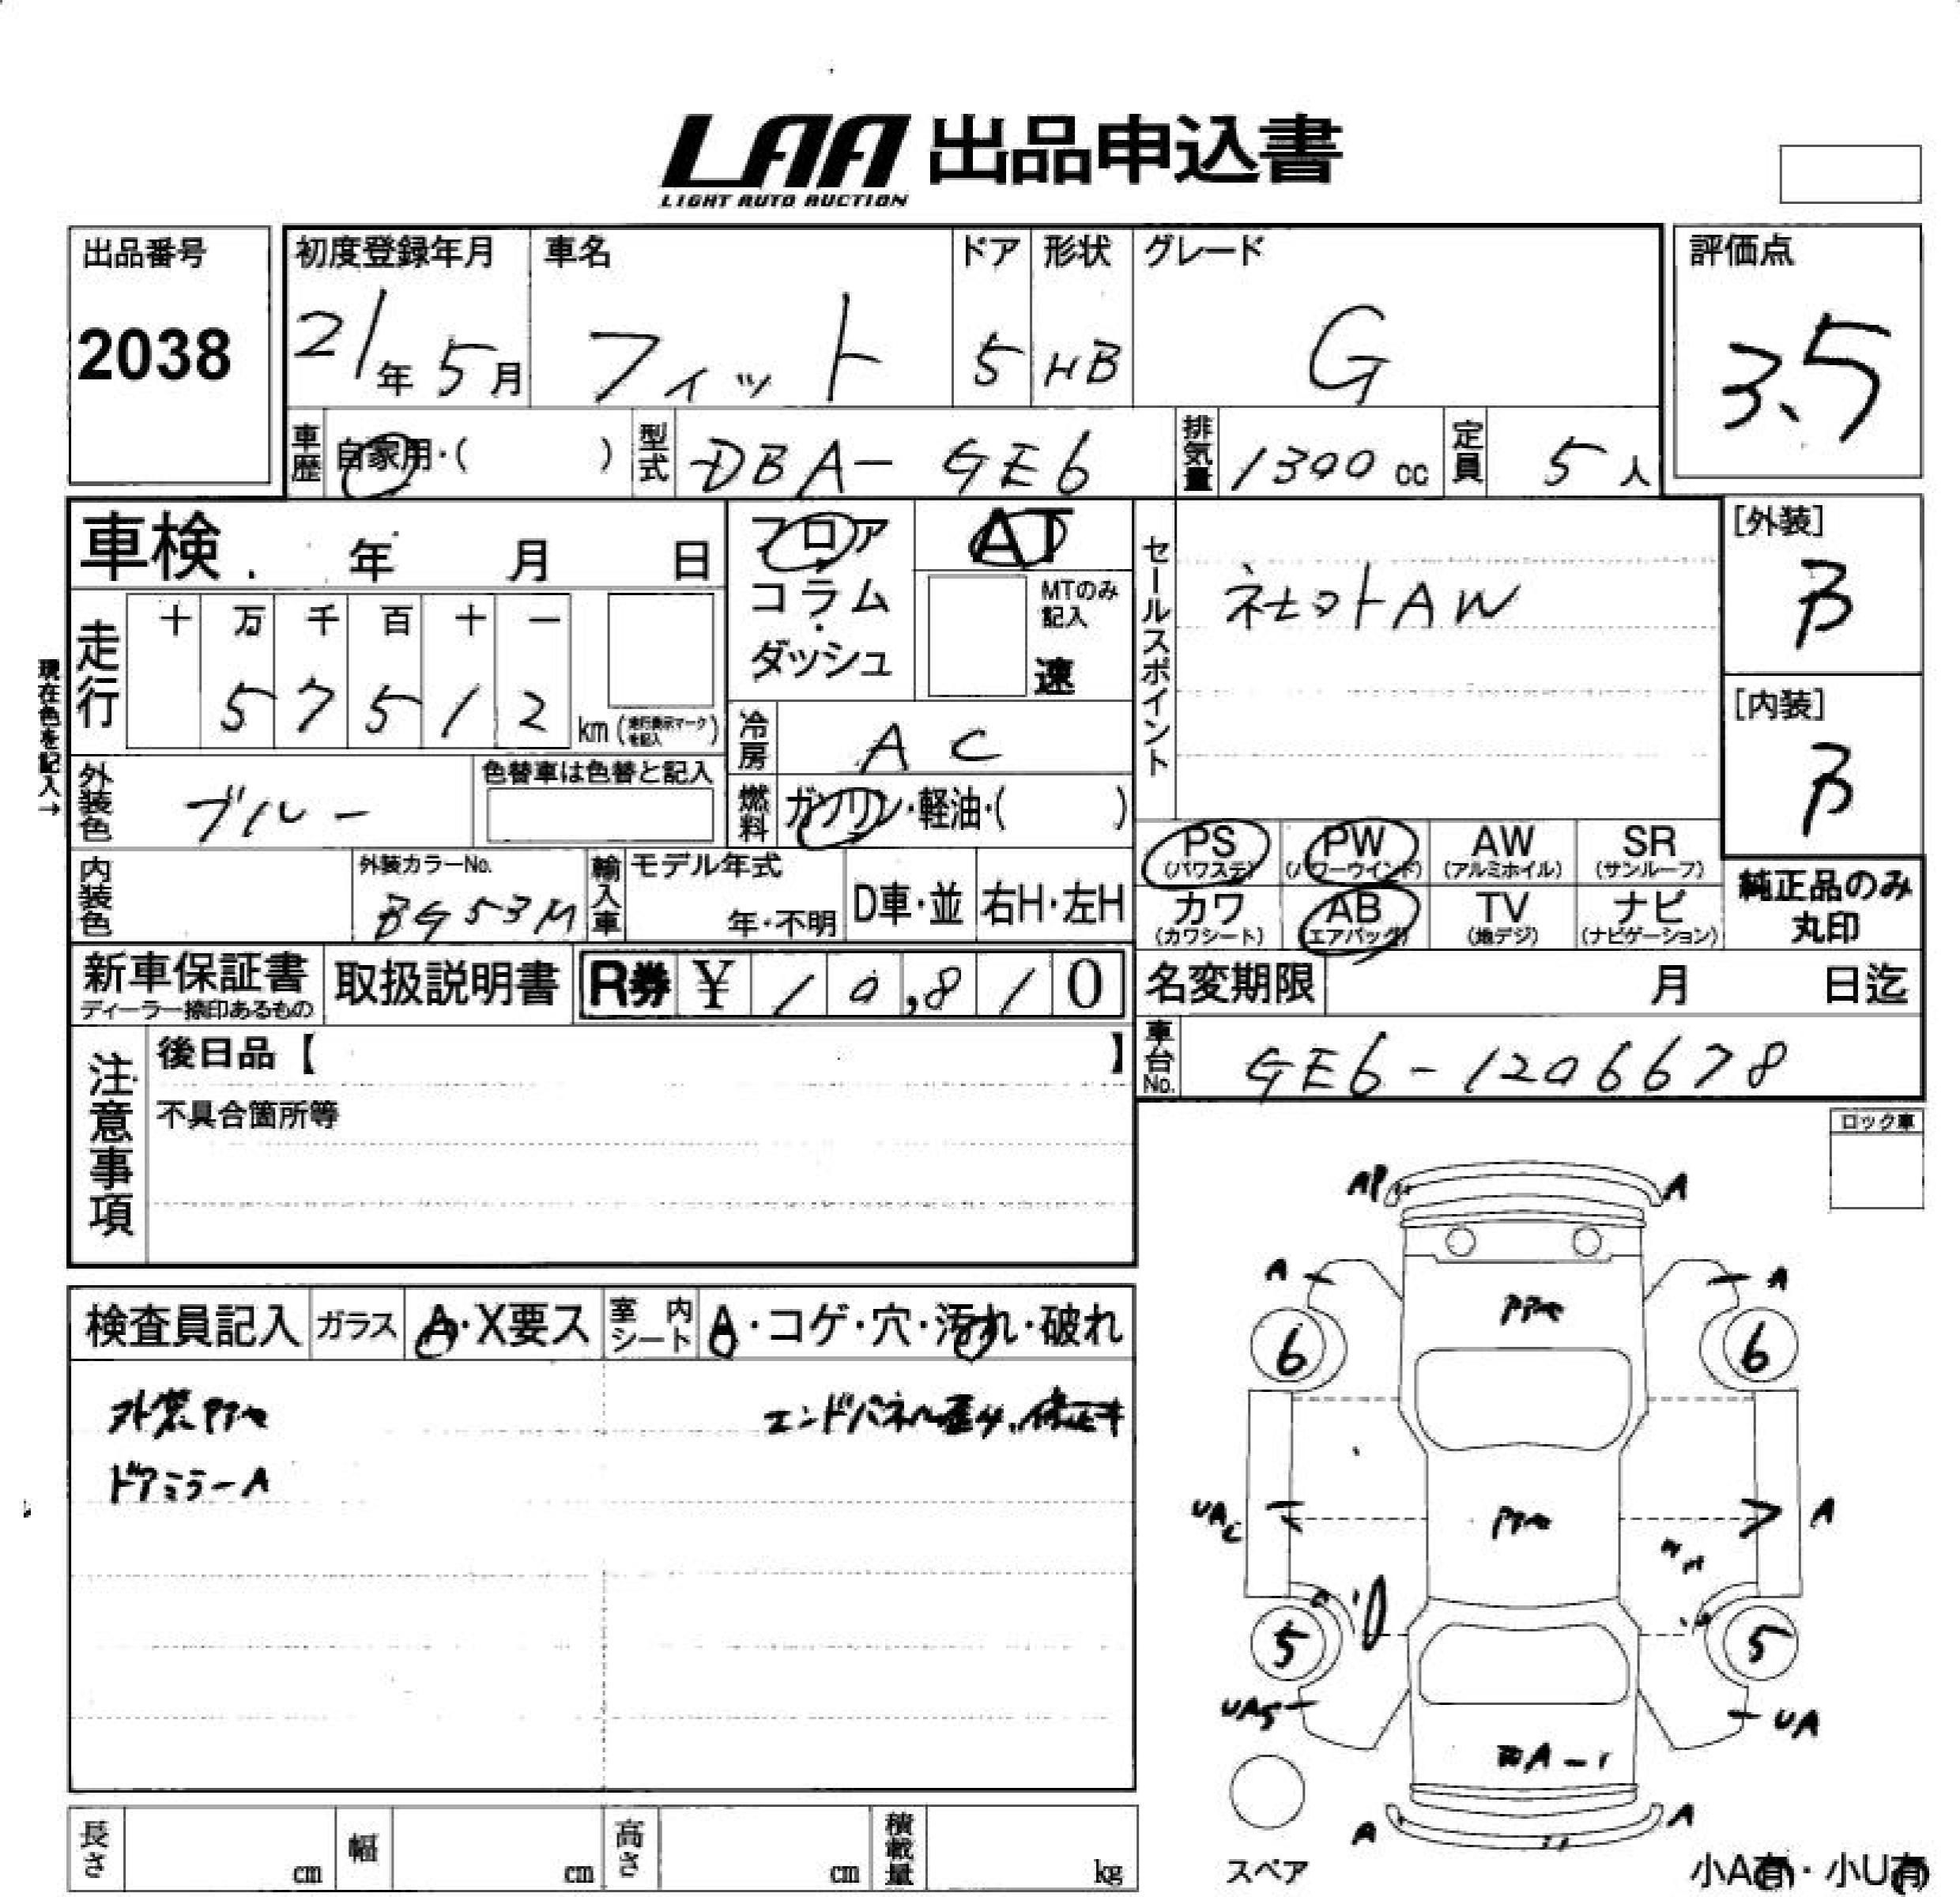 LAA 出品申込書
LIGHT AUTO AUCTION
出品番号
2038
初度登録年月
21年 5月
車名
フィット
ドア
5
形状
HB
グレード
G
評価点
3.5
車歴
自家用・( )
型式
DBA-GE6
排気量
1300 cc
定員
5 人
車検 年 月 日
フロア
コラム
ダッシュ
AT
MTのみ
記入
速
セールスポイント
社外AW
[外装]
B
[内装]
B
現在色を記入→
走行
十 万 千 百 十 一
5 7 5 1 2
km (走行表示マークを記入)
冷房
AC
外装色
ブルー
色替車は色替と記入
燃料
ガソリン・軽油・( )
PS
(パワステ)
PW
(パワーウインド)
AW
(アルミホイル)
SR
(サンルーフ)
カワ
(カワシート)
AB
(エアバッグ)
TV
(地デジ)
ナビ
(ナビゲーション)
純正品のみ
丸印
内装色
外装カラーNo.
BG53M
輸入車
モデル年式
年・不明
D車・並
右H・左H
新車保証書
ディーラー捺印あるもの
取扱説明書
R券 ¥ 10,810
名変期限 月 日迄
車台No.
GE6-1206678
注意事項
後日品【 】
不具合箇所等
ロック車
AP A
A A
6 6
UA A
5 5
UAS UA
A-1
A A
スペア
小A有・小U有
検査員記入
ガラス
A・X要ス
室内シート
A・コゲ・穴・汚れ・破れ
ドアミラーA
長さ cm
幅 cm
高さ cm
積載量 kg